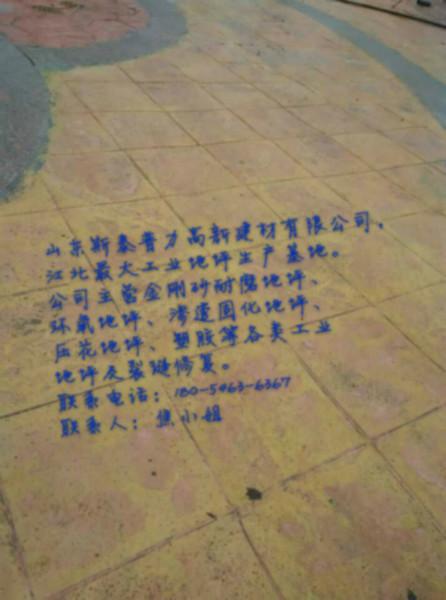 山东斯泰普力高新建材有限公司，
江北最大工业地坪生产基地。
公司主营金刚砂耐磨地坪、
环氧地坪、渗透固化地坪、
压花地坪、塑胶等各类工业
地坪及裂缝修复。
联系电话：180-5463-6367
联系人：焦小姐